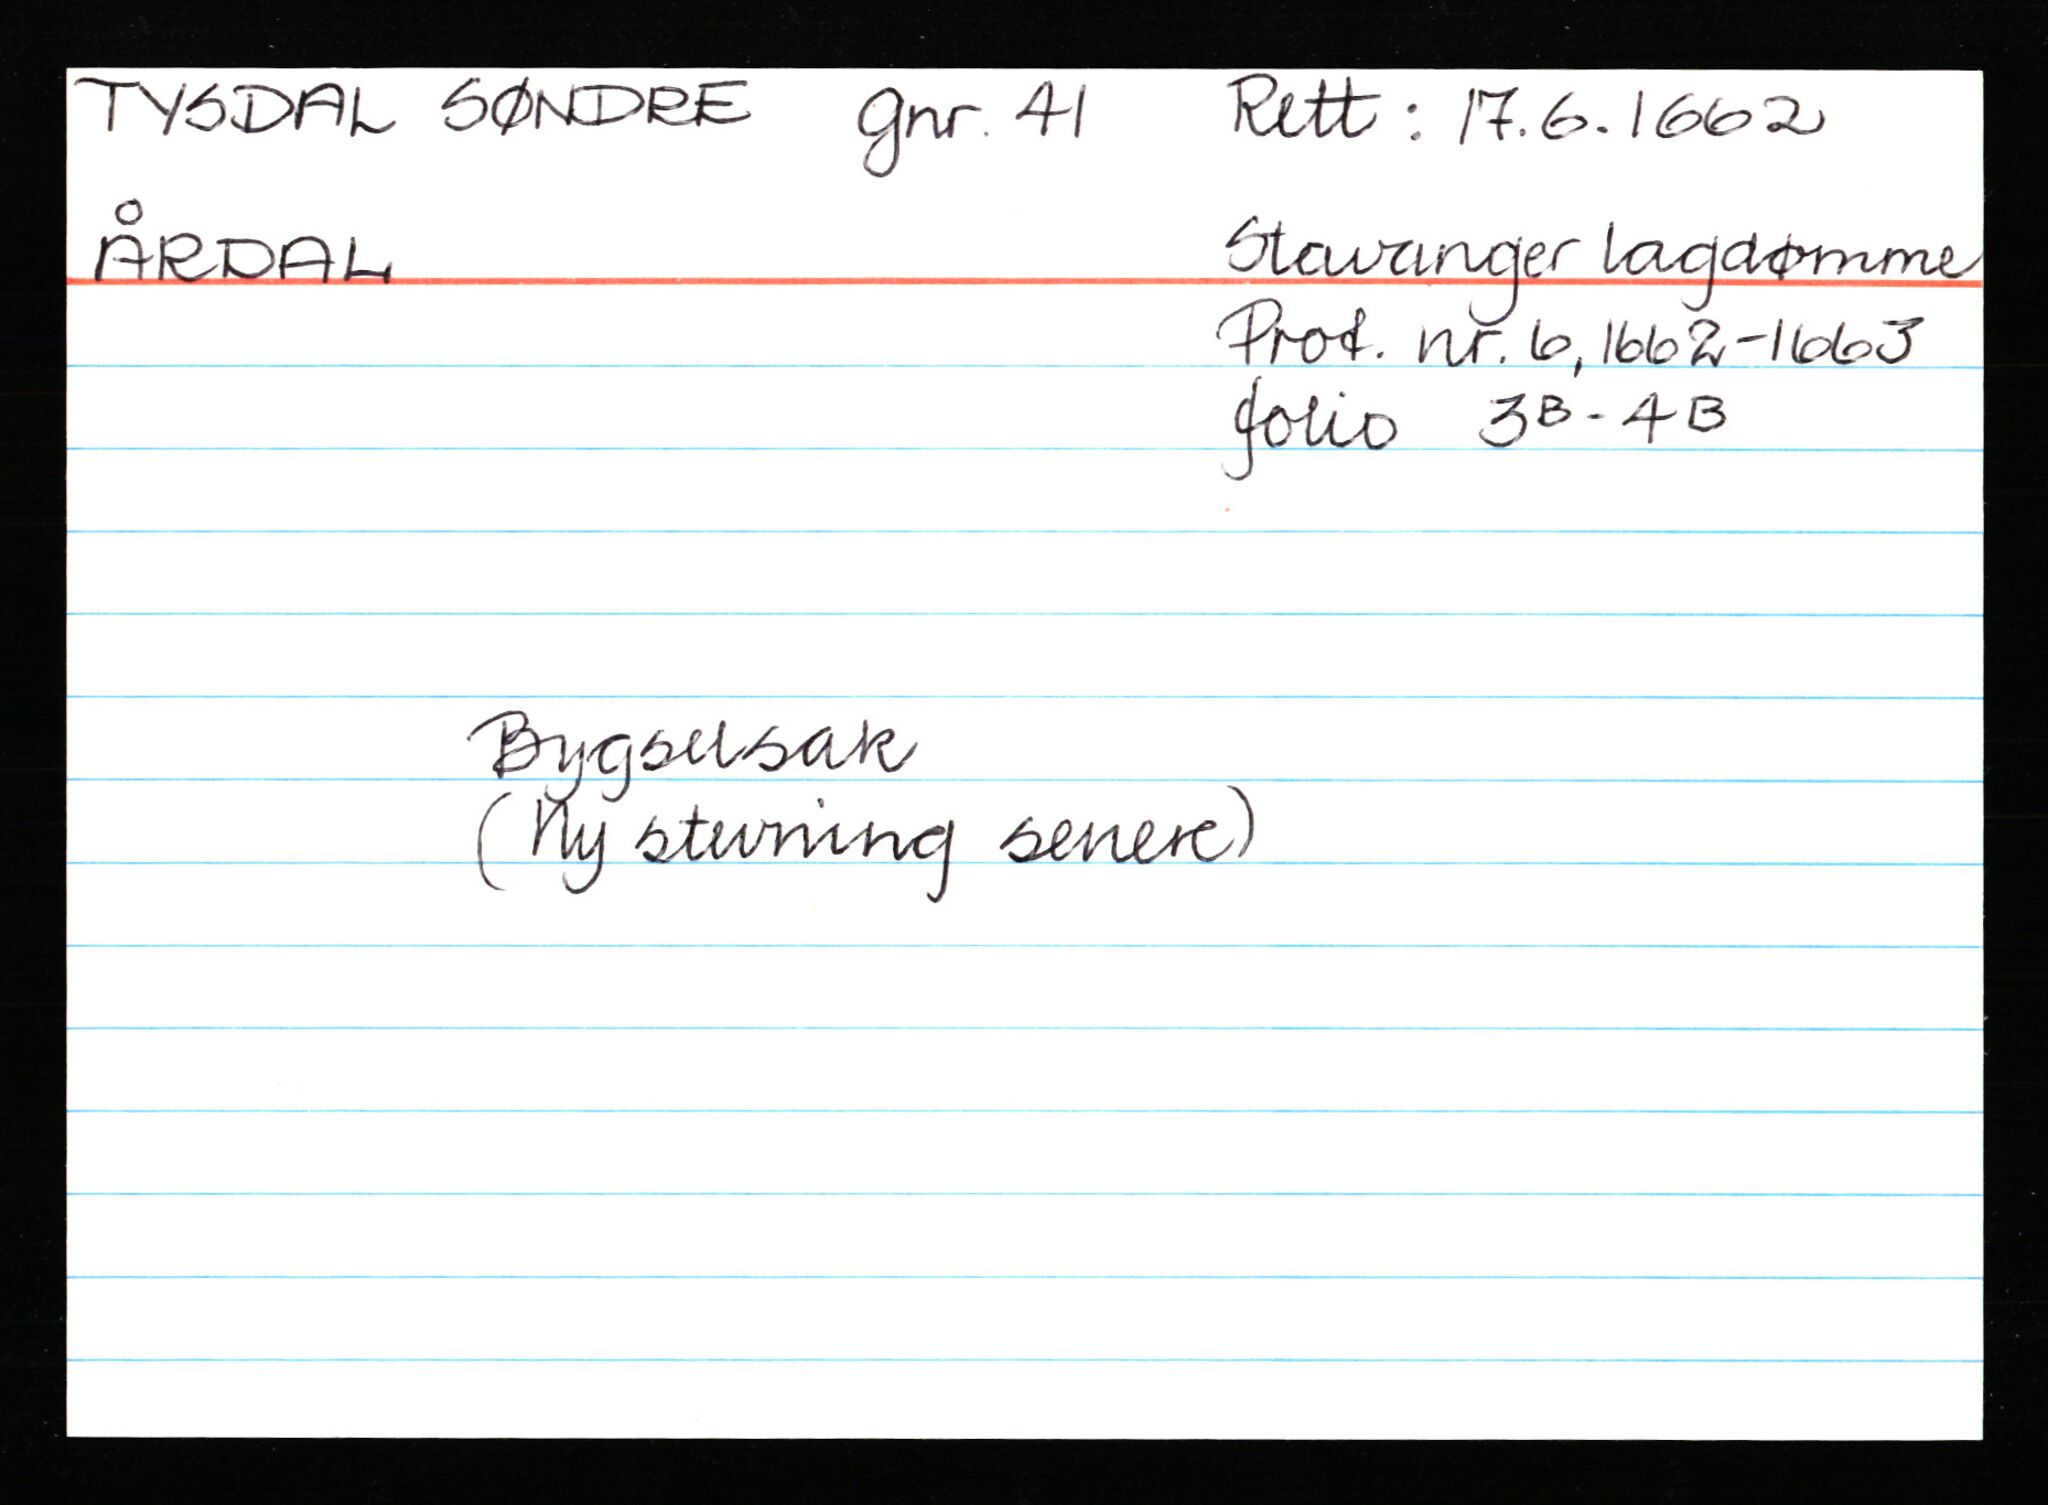 TYSDAL SØNDRE gnr. 41 Rett: 17.6.1662
ÅRDAL Stavanger lagdømme
Prot. nr. 6, 1662-1663
folio 3B - 4B
Bygselsak
(Ny stevning senere)